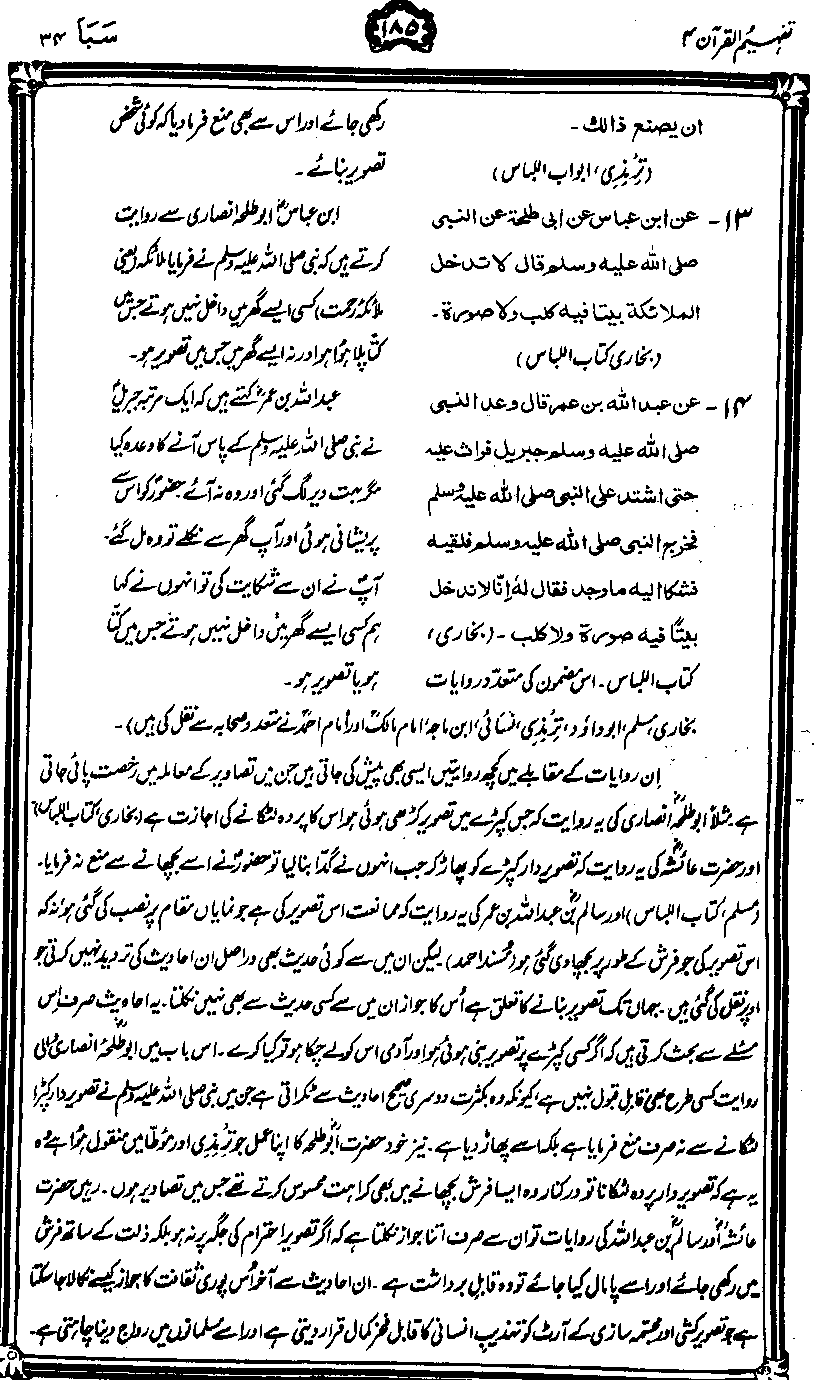 تفہیم القرآن ۴
۱۸۵
سَبَا ۳۴
ان یصنع ذالک۔
(ترمذی، ابواب اللباس)
۱۳۔ عن ابن عباس عن ابی طلحۃ عن النبی
صلی اللہ علیہ وسلم قال لا تدخل
الملائکۃ بیتا فیہ کلب ولا صورۃ۔
(بخاری کتاب اللباس)
۱۴۔ عن عبد اللہ بن عمر قال وعد النبی
صلی اللہ علیہ وسلم جبریل فراث علیہ
حتی اشتد علی النبی صلی اللہ علیہ وسلم
فخرج النبی صلی اللہ علیہ وسلم فلقیہ
فشکا الیہ ما وجد فقال لہٗ اِنّا لا ندخل
بیتًا فیہ صورۃ ولا کلب۔ (بخاری،
کتاب اللباس۔ اس مضمون کی متعدد روایات
رکھی جائے اور اس سے بھی منع فرما دیا کہ کوئی شخص
تصویر بنائے۔
ابن عباسؓ ابو طلحہ انصاری سے روایت
کرتے ہیں کہ نبی صلی اللہ علیہ وسلم نے فرمایا ملائکہ (یعنی
ملائکۂ رحمت) کسی ایسے گھر میں داخل نہیں ہوتے جس میں
کتا پلا ہوا ہو اور نہ ایسے گھر میں جس میں تصویر ہو۔
عبد اللہ بن عمرؓ کہتے ہیں کہ ایک مرتبہ جبریلؑ
نے نبی صلی اللہ علیہ وسلم کے پاس آنے کا وعدہ کیا
مگر بہت دیر لگ گئی اور وہ نہ آئے حضورؐ کو اس سے
پریشانی ہوئی اور آپ گھر سے نکلے تو وہ مل گئے۔
آپؐ نے ان سے شکایت کی تو انہوں نے کہا
ہم کسی ایسے گھر میں داخل نہیں ہوتے جس میں کتا
ہو یا تصویر ہو۔
بخاری، مسلم، ابوداؤد، ترمذی، نسائی، ابن ماجہ، امام مالکؒ اور امام احمدؒ نے متعدد صحابہ سے نقل کی ہیں)۔
اِن روایات کے مقابلے میں کچھ روایتیں ایسی بھی پیش کی جاتی ہیں جن میں تصاویر کے معاملہ میں رخصت پائی جاتی
ہے مثلاً ابو طلحہؓ انصاری کی یہ روایت کہ جس کپڑے میں تصویر کڑھی ہوئی ہو اس کا پردہ لٹکانے کی اجازت ہے (بخاری، کتاب اللباس)
اور حضرت عائشہؓ کی یہ روایت کہ تصویر دار کپڑے کو پھاڑ کر جب انہوں نے گدّا بنا لیا تو حضورؐ نے اسے بچھانے سے منع نہ فرمایا۔
(مسلم، کتاب اللباس) اور سالمؓ بن عبد اللہ بن عمر کی یہ روایت کہ ممانعت اس تصویر کی ہے جو نمایاں مقام پر نصب کی گئی ہو نہ کہ
اس تصویر کی جو فرش کے طور پر بچھا دی گئی ہو (مُسند احمد) لیکن ان میں سے کوئی حدیث بھی دراصل ان احادیث کی تردید نہیں کرتی جو
اوپر نقل کی گئی ہیں۔ جہاں تک تصویر بنانے کا تعلق ہے اُس کا جواز ان میں سے کسی حدیث سے بھی نہیں نکلتا۔ یہ احادیث صرف اِس
مسئلے سے بحث کرتی ہیں کہ اگر کسی کپڑے پر تصویر بنی ہوئی ہو اور آدمی اس کو لے چکا ہو تو کیا کرے۔ اس باب میں ابو طلحہؓ انصاری والی
روایت کسی طرح بھی قابل قبول نہیں ہے، کیونکہ وہ بکثرت دوسری صحیح احادیث سے ٹکراتی ہے جن میں نبی صلی اللہ علیہ وسلم نے تصویر دار کپڑا
لٹکانے سے نہ صرف منع فرمایا ہے بلکہ اسے پھاڑ دیا ہے۔ نیز خود حضرت ابو طلحہؓ کا اپنا عمل جو ترمذی اور موطا میں منقول ہوا ہے وہ
یہ ہے کہ تصویر دار پردہ لٹکانا تو درکنار وہ ایسا فرش بچھانے میں بھی کراہت محسوس کرتے تھے جس میں تصاویر ہوں۔ رہیں حضرت
عائشہؓ اور سالمؓ بن عبد اللہ کی روایات تو ان سے صرف اتنا جواز نکلتا ہے کہ اگر تصویر احترام کی جگہ پر نہ ہو بلکہ ذلت کے ساتھ فرش
میں رکھی جائے اور اسے پامال کیا جائے تو وہ قابل برداشت ہے۔ ان احادیث سے آخر اُس پوری ثقافت کا جواز کیسے نکالا جا سکتا
ہے جو تصویر کشی اور مجسمہ سازی کے آرٹ کو تہذیب انسانی کا قابل فخر کمال قرار دیتی ہے اور اسے مسلمانوں میں رواج دینا چاہتی ہے۔